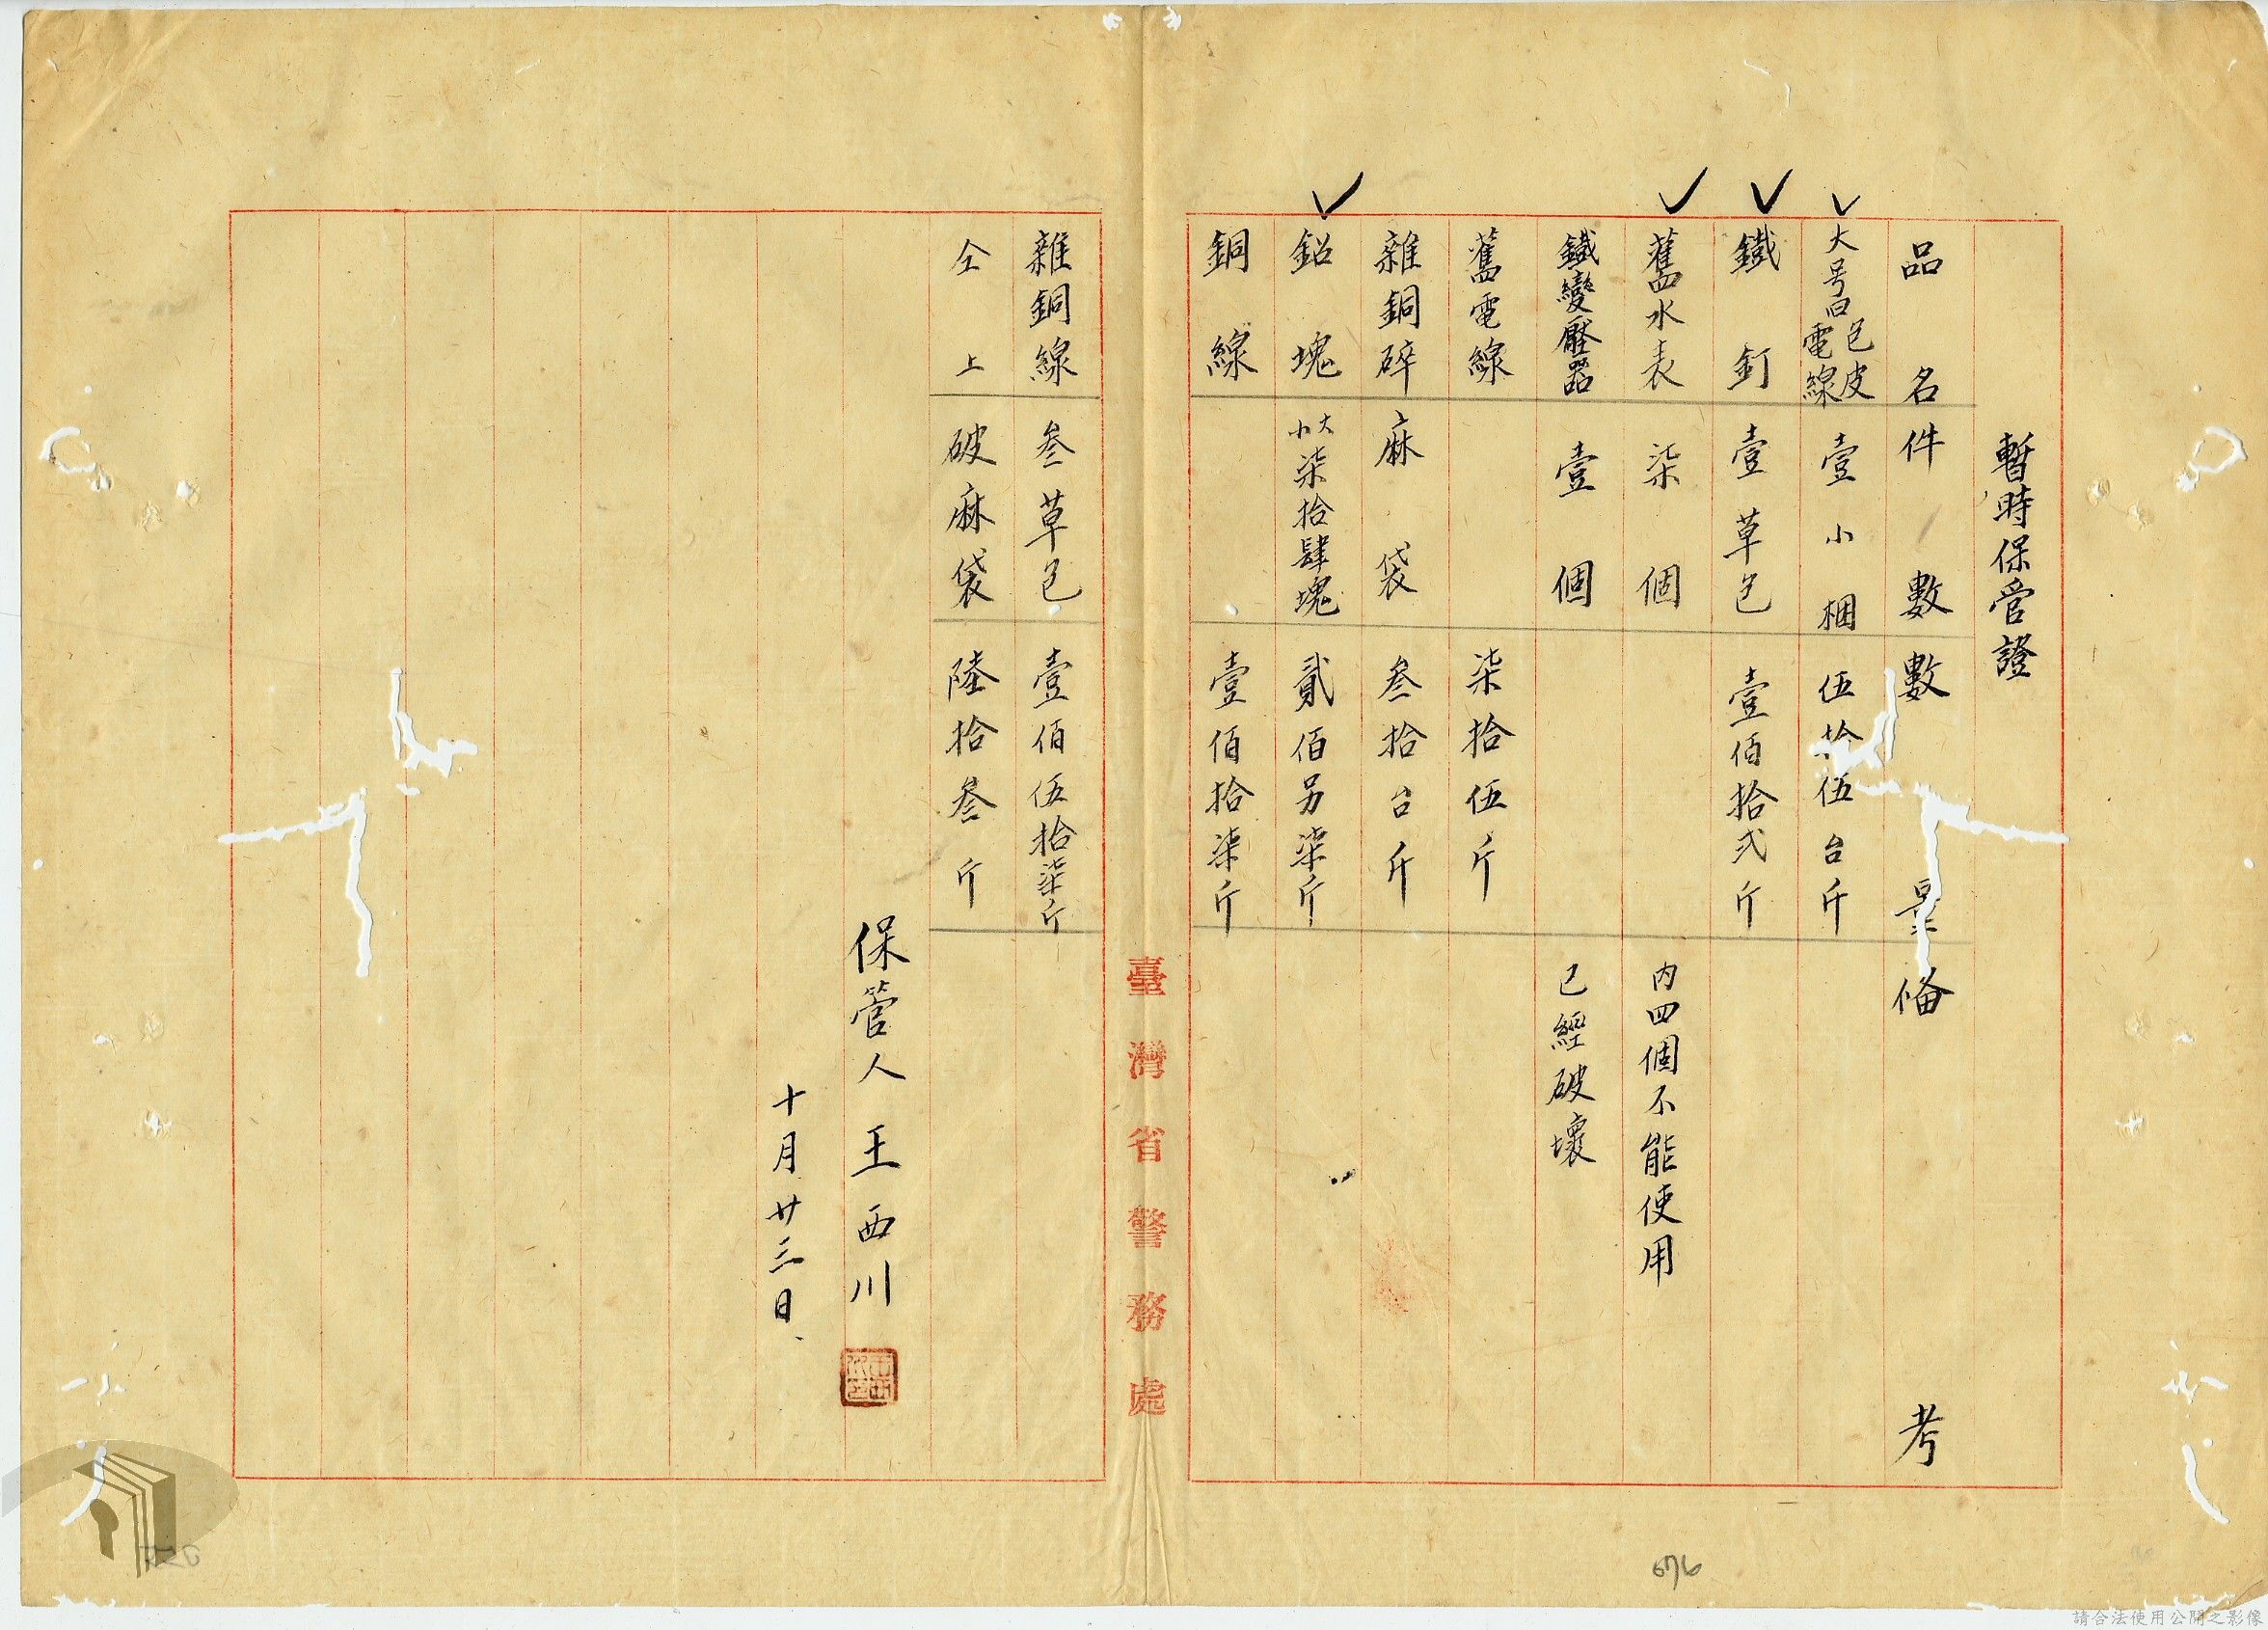 暫時保管證
品名 件數 數量 備考
大号白包皮電線 壹小梱 伍拾伍台斤
鐵釘 壹草包 壹佰拾弍斤
舊水表 柒個 內四個不能使用
鐵變壓器 壹個 已經破壞
舊電線 柒拾伍斤
雜銅碎 麻袋 叁拾台斤
鉛塊 大小柒拾肆塊 貳佰另柒斤
銅線 壹佰拾柒斤
臺灣省警務處
雜銅線 叁草包 壹佰伍拾柒斤
仝上 破麻袋 陸拾叁斤
保管人 王西川
十月廿三日、
676
請合法使用公開之影像